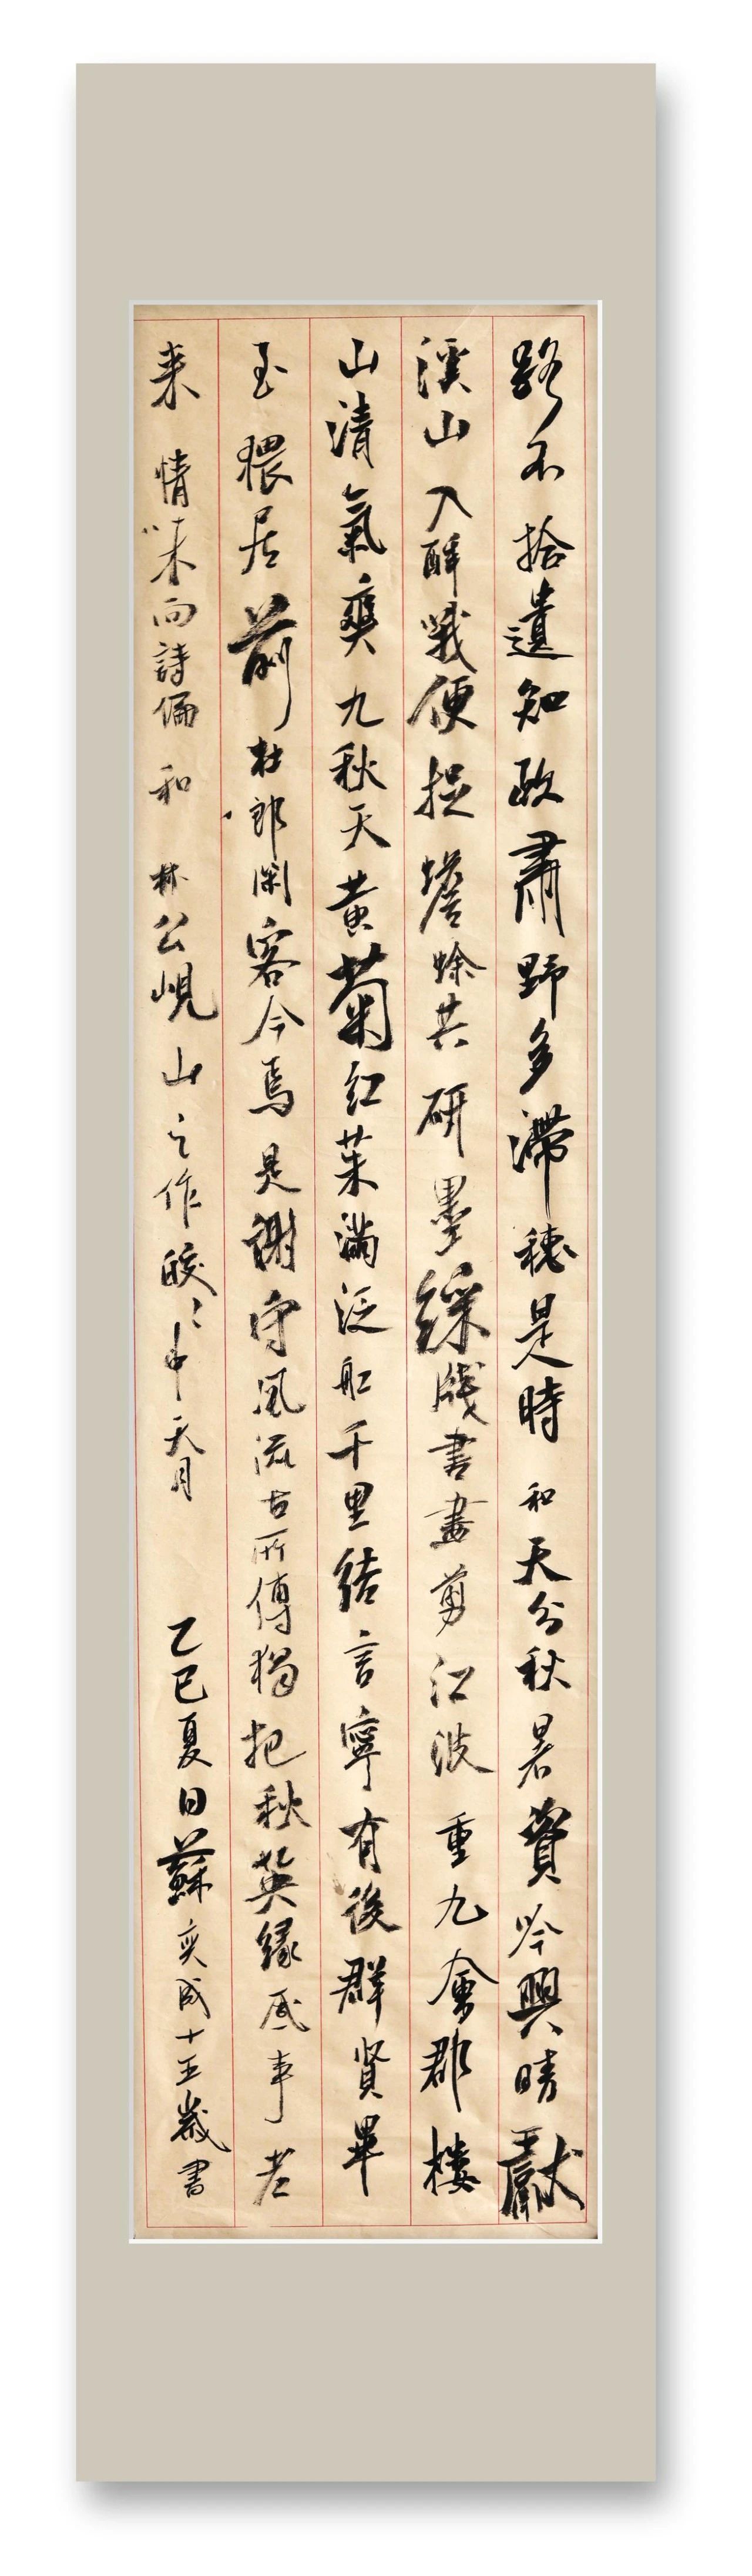 路不拾遺知政肅野多滯穗是時和天分秋暑資吟興晴獻
溪山入醉哦便捉蟾蜍共研墨綵牋書盡剪江波重九會郡樓
山清氣爽九秋天黃菊紅茱滿泛船千里結言寧有後群賢畢
至猥居前杜郎閑客今焉是謝守風流古所傳獨把秋英緣底事老
來情味向詩偏和林公峴山之作皎皎中天月
乙巳夏日蘇奕成十五歲書